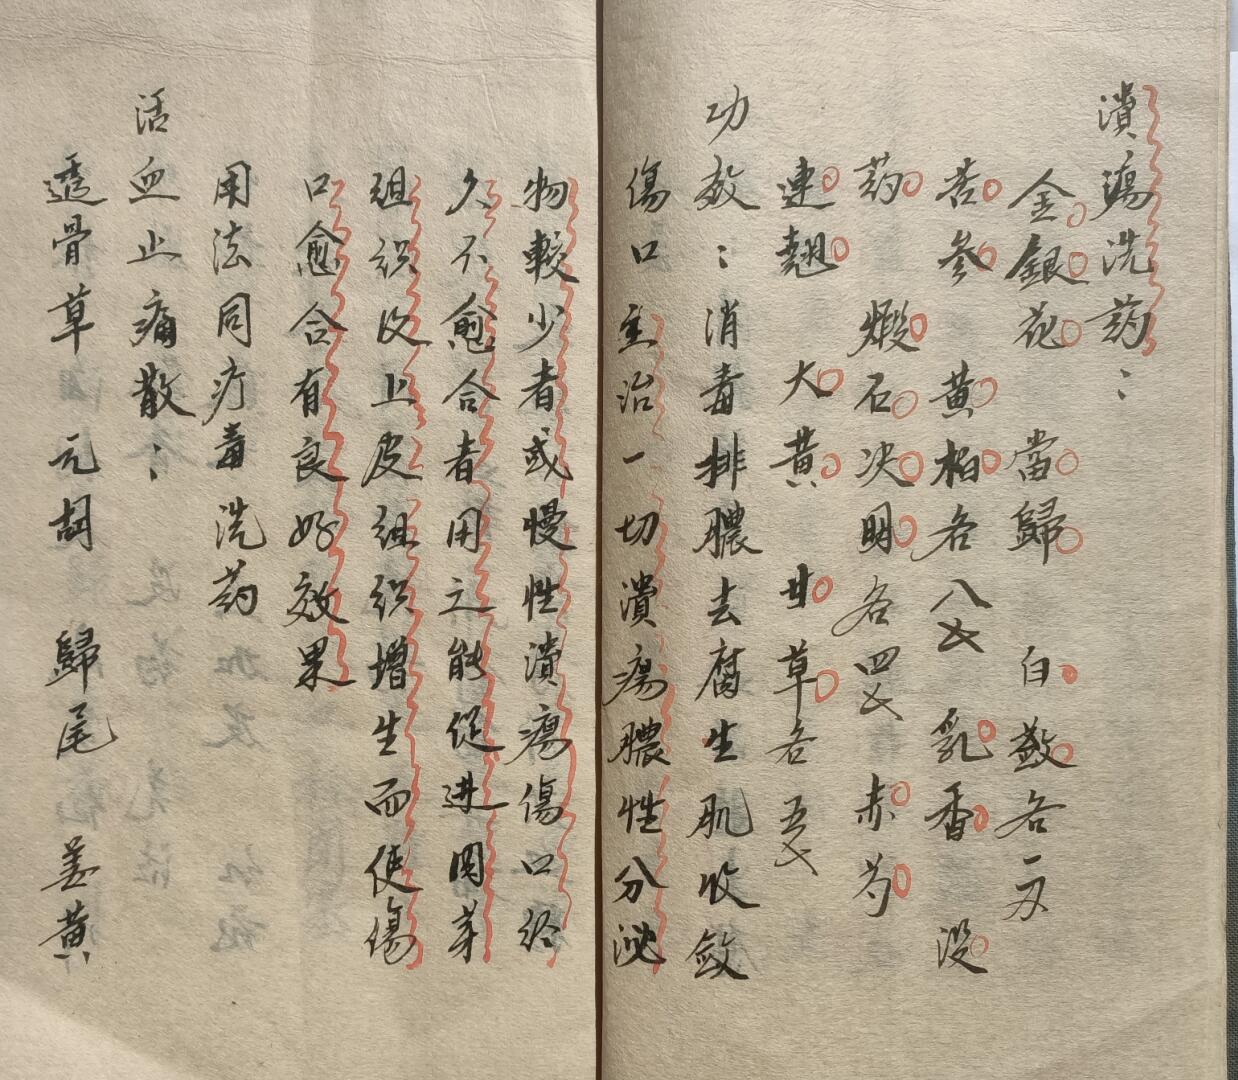 潰瘍洗药：
金銀花 當歸 白蔹各一刄
苦参 黄柏各八 乳香 没
药 煅石决明各四 赤芍
連翘 大黄 甘草各五
功效：消毒排膿去腐生肌收斂
傷口主治一切潰瘍膿性分泌
物較少者或慢性潰瘍傷口经
久不愈合者用之能促進肉芽
组织及上皮组织增生而使傷
口愈合有良好效果
用法同疔毒洗药
活血止痛散：
透骨草 元胡 歸尾 姜黄